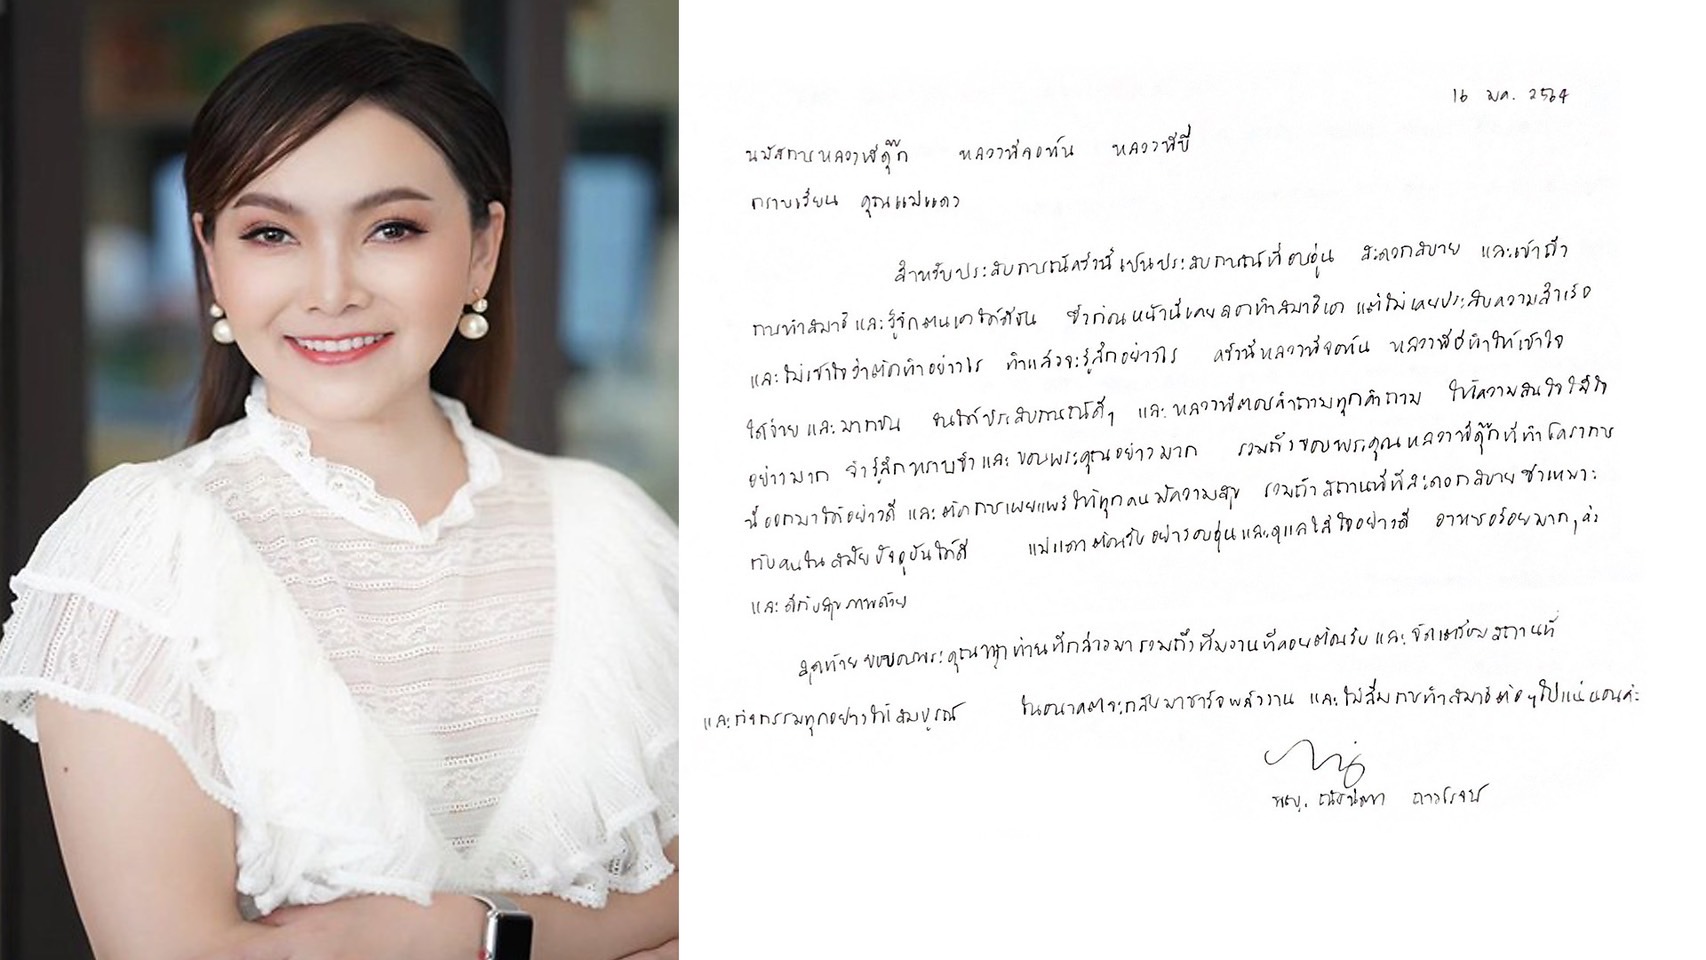 16 มค. 2564
นมัสการหลวงพี่ตุ๊ก หลวงพี่จอห์น หลวงพี่บี
กราบเรียน คุณแม่แดง
สำหรับประสบการณ์ครั้งนี้เป็นประสบการณ์ที่อบอุ่น สะดวกสบาย และเข้าถึง
การทำสมาธิ และรู้จักตนเองได้ดีขึ้น ซึ่งก่อนหน้านี้เคยลองทำสมาธิเอง แต่ไม่เคยประสบความสำเร็จ
และไม่เข้าใจว่าต้องทำอย่างไร ทำแล้วจะรู้สึกอย่างไร ครั้งนี้หลวงพี่จอห์น หลวงพี่บีทำให้เข้าใจ
ได้ง่าย และมากขึ้น จนได้ประสบการณ์ดีๆ และหลวงพี่ตอบคำถามทุกคำถาม ให้ความสนใจใส่ใจ
อย่างมาก จึงรู้สึกทราบซึ้งและขอบพระคุณอย่างมาก รวมถึงขอบพระคุณหลวงพี่ตุ๊กที่ทำโครงการ
นี้ออกมาได้อย่างดี และต้องการเผยแพร่ให้ทุกคนมีความสุข รวมถึงสถานที่ที่สะดวกสบายช่างเหมาะ
กับคนในสมัยปัจจุบันได้ดี แม่แดงต้อนรับอย่างอบอุ่นและดูแลใส่ใจอย่างดี อาหารอร่อยมากๆค่ะ
และดีกับสุขภาพด้วย
สุดท้าย ขอขอบพระคุณทุกๆท่านที่กล่าวมา รวมถึงทีมงานที่คอยต้อนรับ และจัดเตรียมสถานที่
และกิจกรรมทุกอย่างให้สมบูรณ์ ในอนาคตจะกลับมาชาร์จพลังงาน และไม่ลืมการทำสมาธิต่อๆไปแน่นอนค่ะ
พญ. ณัชนิตา ถาวโรจน์